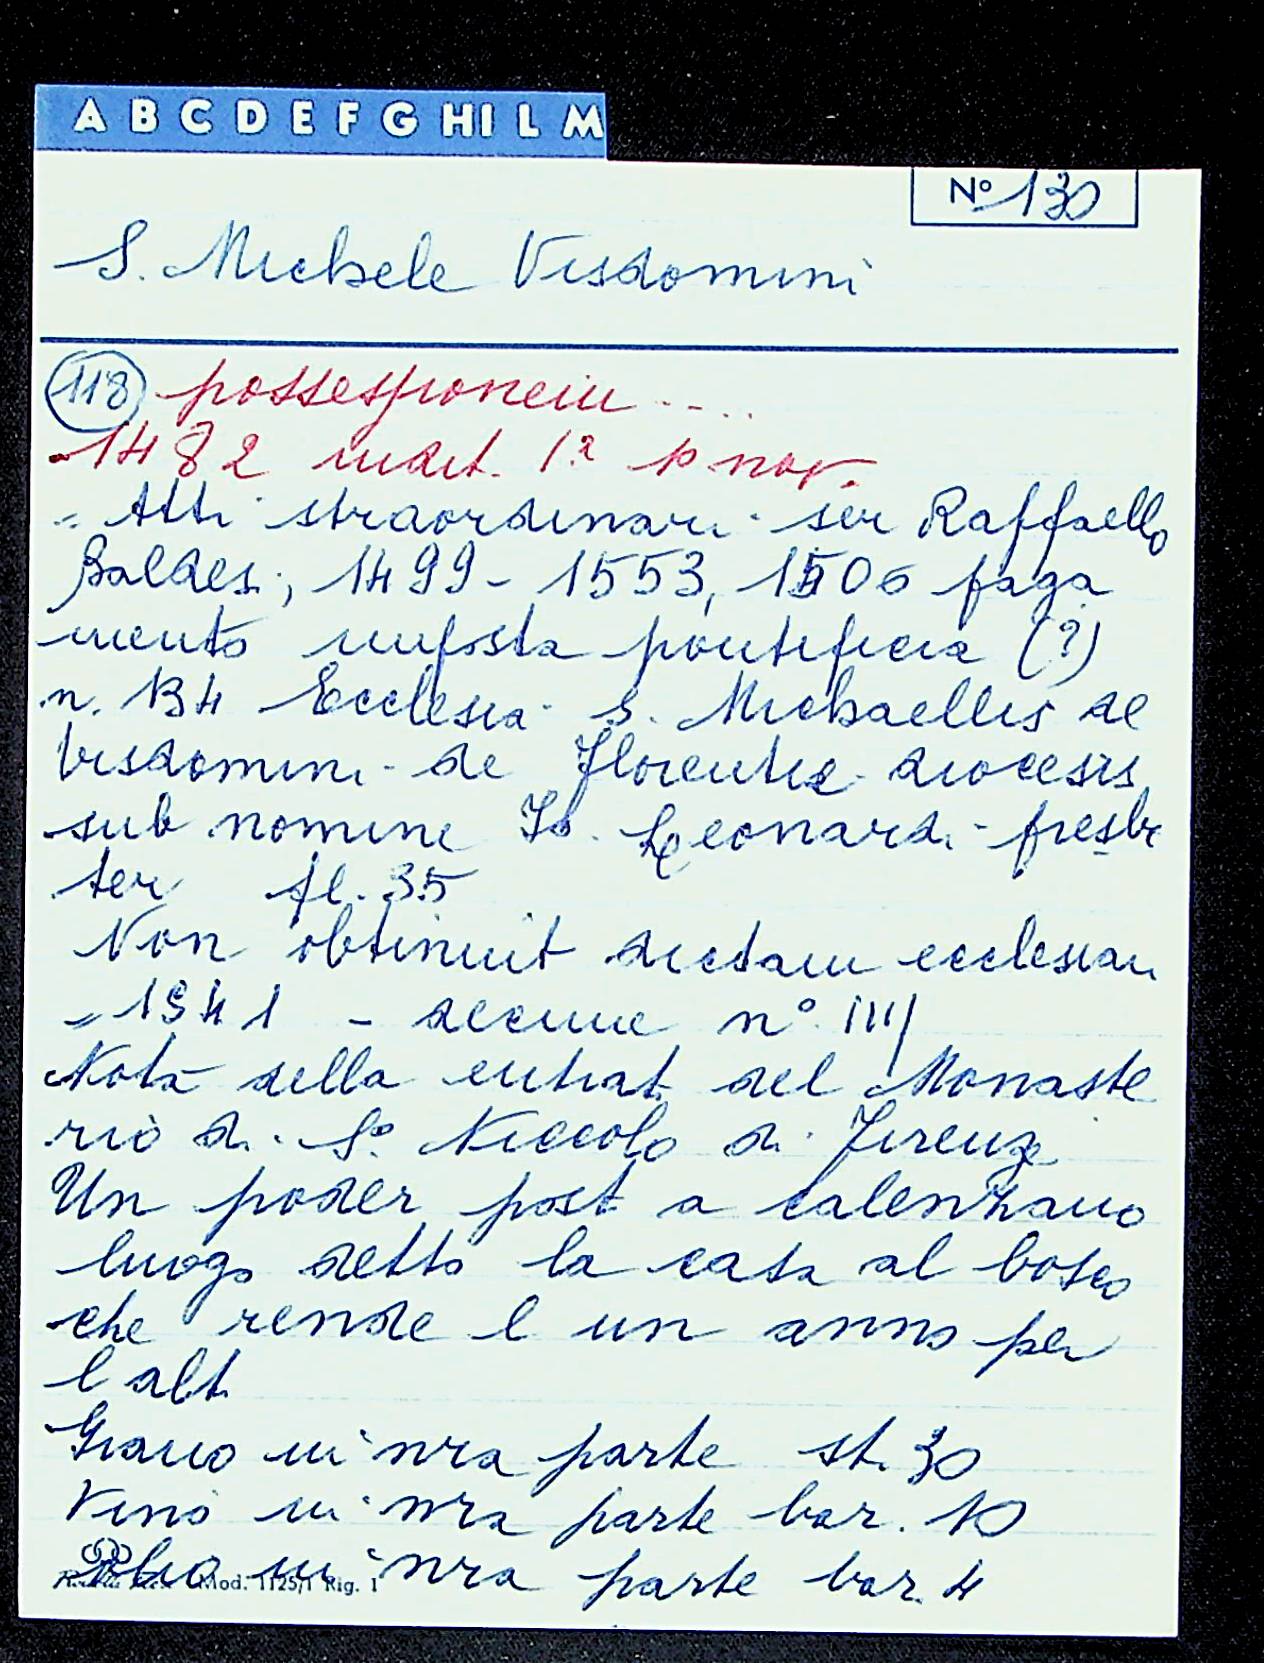 A B C D E F G HI L M
Nº 130
S. Michele Visdomini
118 possessionem ....
-1482 indict. 1ª p nov.
= Atti straordinari ser Raffaello
Baldesi, 1499-1553, 1506 paga
mento imposta pontificia (?)
n. 134 Ecclesia S. Michaellis de
Visdomini de Florentie diocesis
sub nomine Jo. Leonardi presbi
ter fl. 35
Non obtinuit dictam ecclesiam
= 1541 - decime nº 111
Nota della entrat del Monaste
rio di Sº Niccolo di Firenze
Un poder post a calenzano
luogo detto la casa al bosco
che rende l un anno per
l alt
Grano in nra parte st. 30
Vino in nra parte bar. 10
Olio in nra parte bar. 4
Mod. 1125/1 Rig. 1